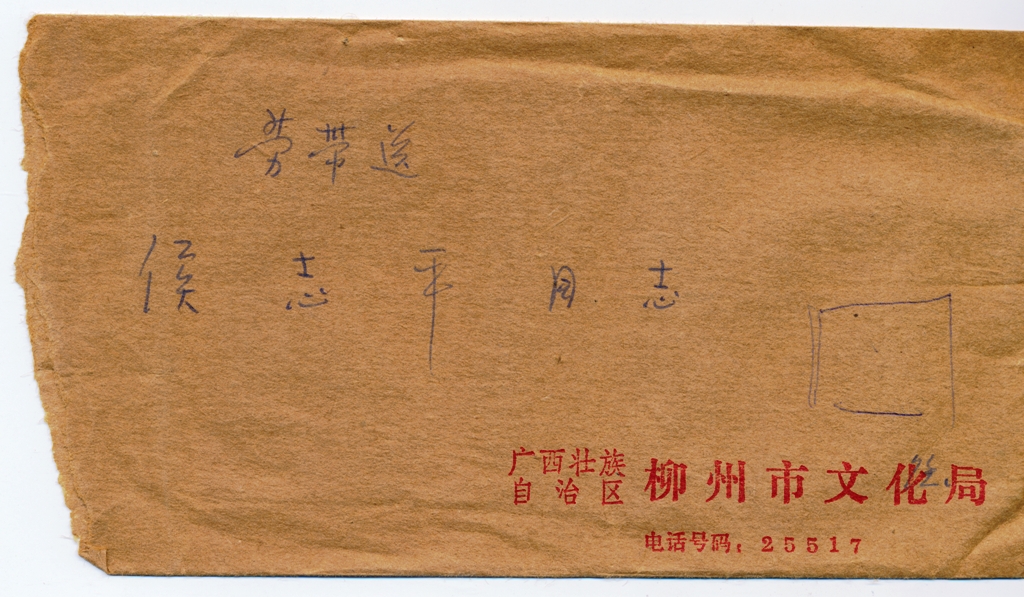 劳带送
侯志平同志
广西壮族
自治区
柳州市文化局
电话号码：25517